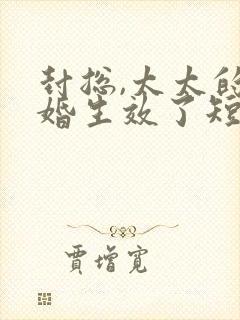 封总,太太的
婚生效了短
賈增寬